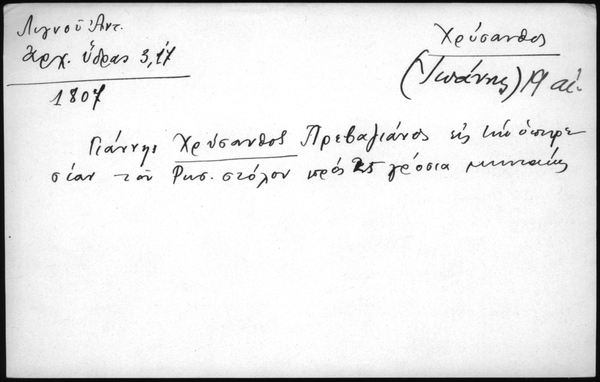 Λιγνοῦ Ἀντ.
Ἀρχ. Ὕδρας 3, 17
1807
Χρύσανθος
(Ἰωάννης) 19 αἰ.
Γιάννης Χρύσανθος Πρεβεζιάνος εἰς τὴν ὑπηρε
σίαν τοῦ Ρωσ. στόλου πρὸς 25 γρόσια μηνιαίως